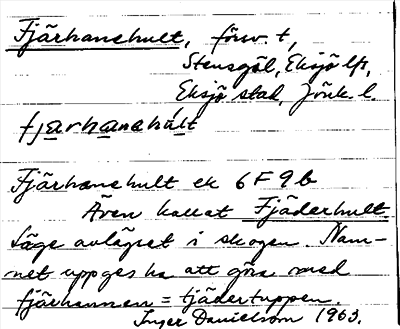 Fjärhanehult, försv. t,
Stensgöl, Eksjö lfs,
Eksjö stad, Jönk l.
fjärhanehúlt
Fjärhanehult ek 6 F 9 b
Även kallat Fjäderhult
Läge avlägset i skogen. Nam-
net uppges ha att göra med
fjärhannen = tjädertuppen.
Inger Danielsson 1963.